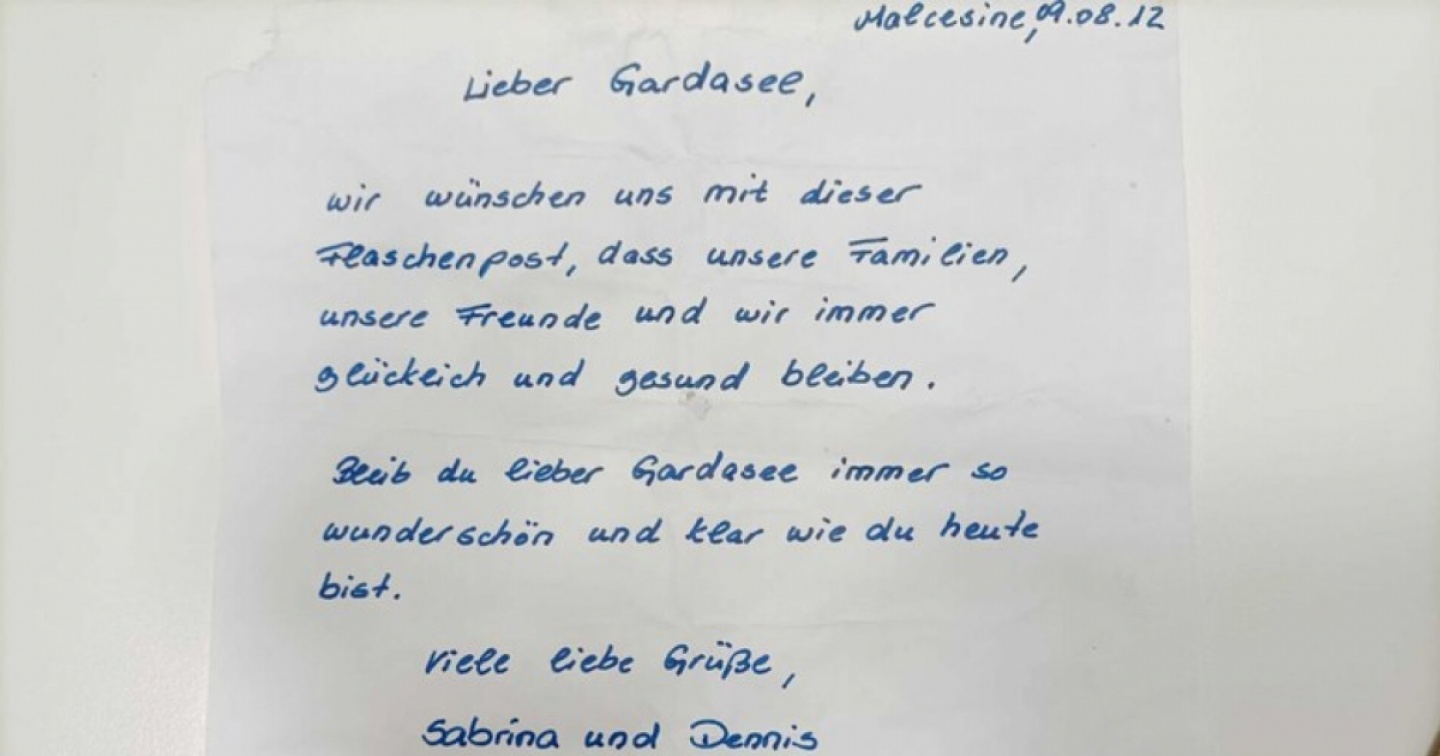 Malcesine, 09.08.12
Lieber Gardasee,
wir wünschen uns mit dieser
Flaschenpost, dass unsere Familien,
unsere Freunde und wir immer
glücklich und gesund bleiben.
Bleib du lieber Gardasee immer so
wunderschön und klar wie du heute
bist.
Viele liebe Grüße,
Sabrina und Dennis